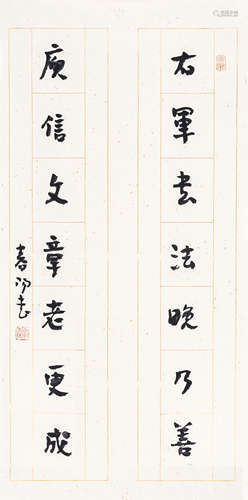 右軍書法晚乃善
庾信文章老更成
春初書